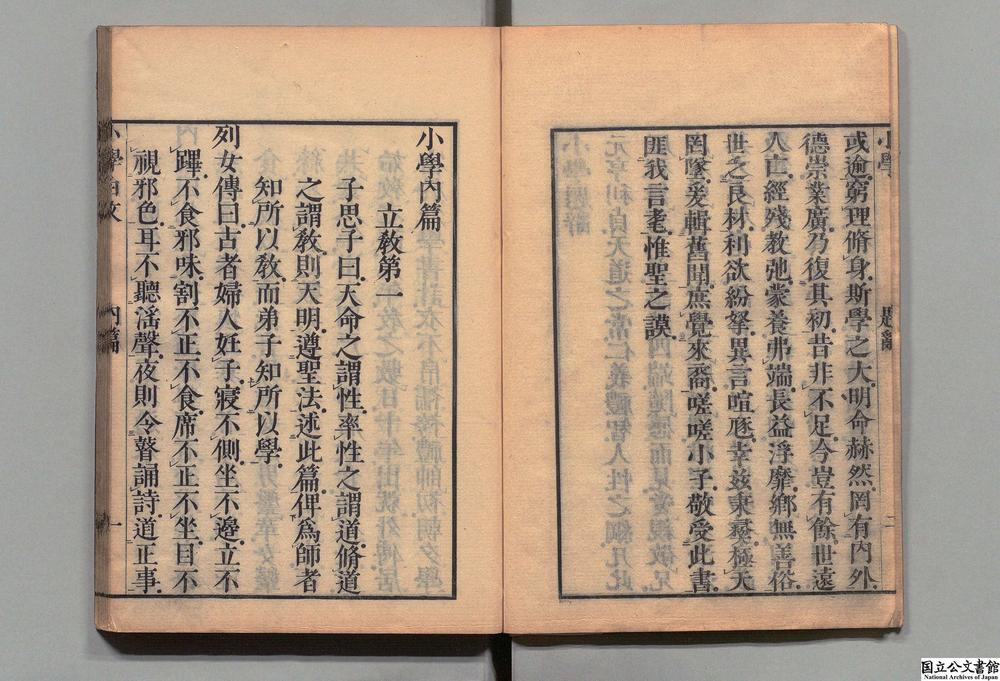 或逾窮理脩身斯學之大明命赫然罔有內外
德崇業廣乃復其初昔非不足今豈有餘世遠
人亡經殘教弛蒙養弗端長益浮靡鄉無善俗
世乏良材利欲紛拏異言喧豗幸玆秉彝極天
罔墜爰輯舊聞庶覺來裔嗟嗟小子敬受此書
匪我言耄惟聖之謨
小學內篇
立敎第一
子思子曰天命之謂性率性之謂道脩道
之謂敎則天明遵聖法述此篇俾爲師者
知所以敎而弟子知所以學
列女傳曰古者婦人妊子寢不側坐不邊立不
蹕不食邪味割不正不食席不正不坐目不
視邪色耳不聽淫聲夜則令瞽誦詩道正事
國立公文書館
National Archives of Japan